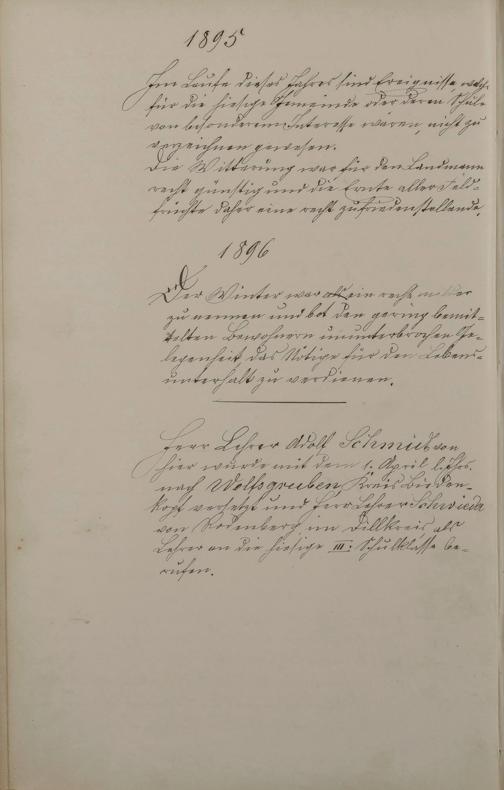 1895
Im Laufe dieses Jahres sind Ereignisse welche
für die hiesige Gemeinde oder deren Schule
von besonderem Interesse wären, nicht zu
verzeichnen gewesen.
Die Witterung war für den Landmann
recht günstig und die Ernte aller Feld-
früchte daher eine recht zufriedenstellende.
1896
Der Winter war als ein recht
zu nennen und bot den gering bemit-
telten Bewohnern ununterbrochen Ge-
legenheit das Nötige für den Lebens-
unterhalt zu verdienen.
Herr Lehrer Adolf Schmidt von
hier wurde mit dem 1. April l. Jhs.
nach Wolfsgruben, Kreis Bieden-
kopf versetzt und Herr Lehrer Schwieda
von Rodenberg im Dillkreis als
Lehrer an die hiesige III. Schulklasse be-
rufen.